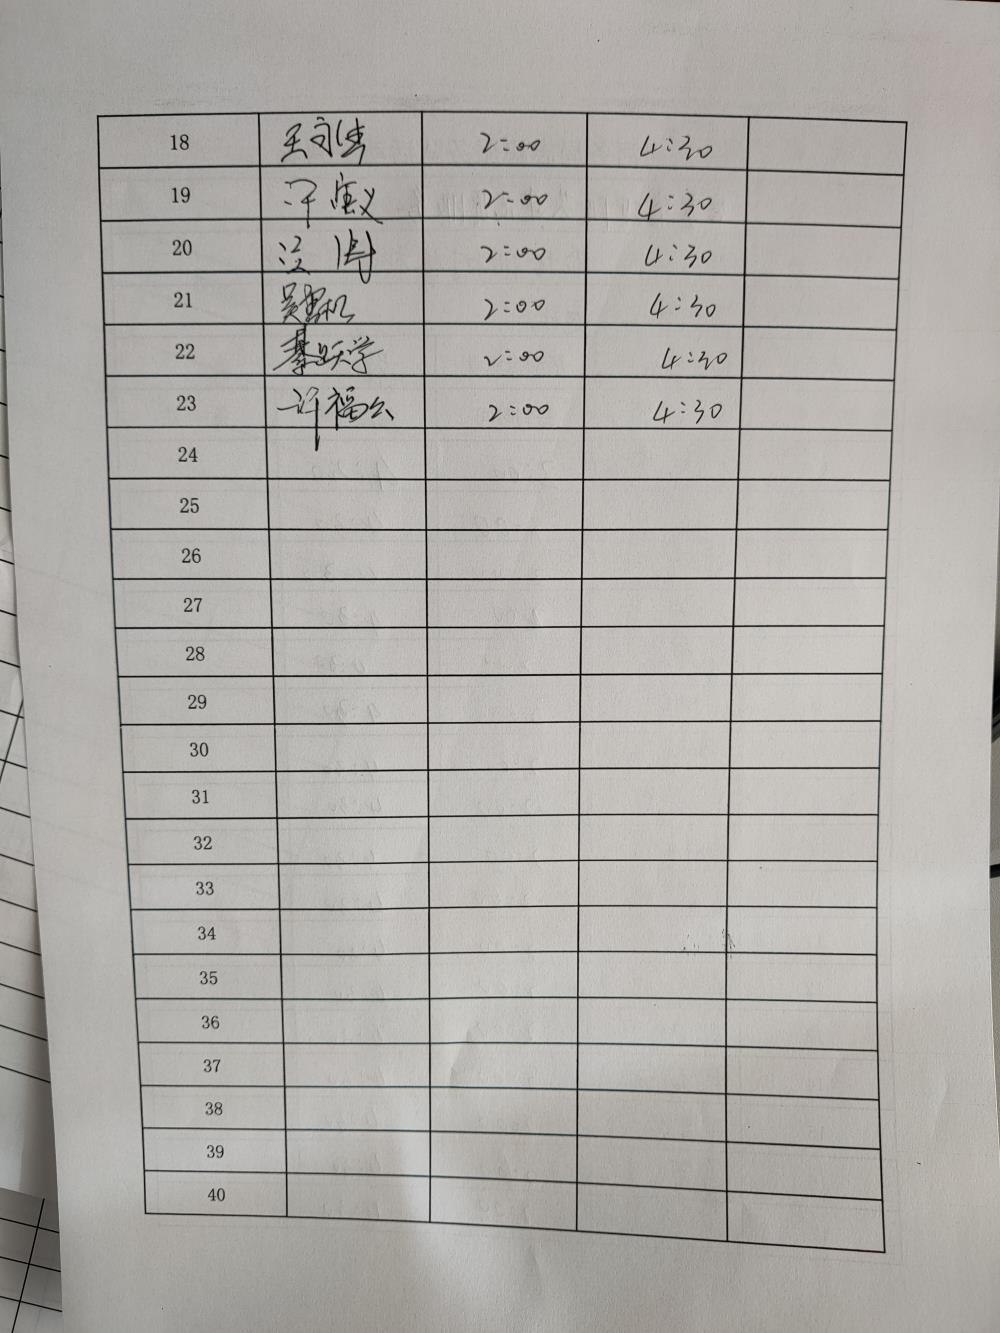 18 2:00 4:30
19 2:00 4:30
20 2:00 4:30
21 2:00 4:30
22 2:00 4:30
23 许福云 2:00 4:30
24
25
26
27
28
29
30
31
32
33
34
35
36
37
38
39
40